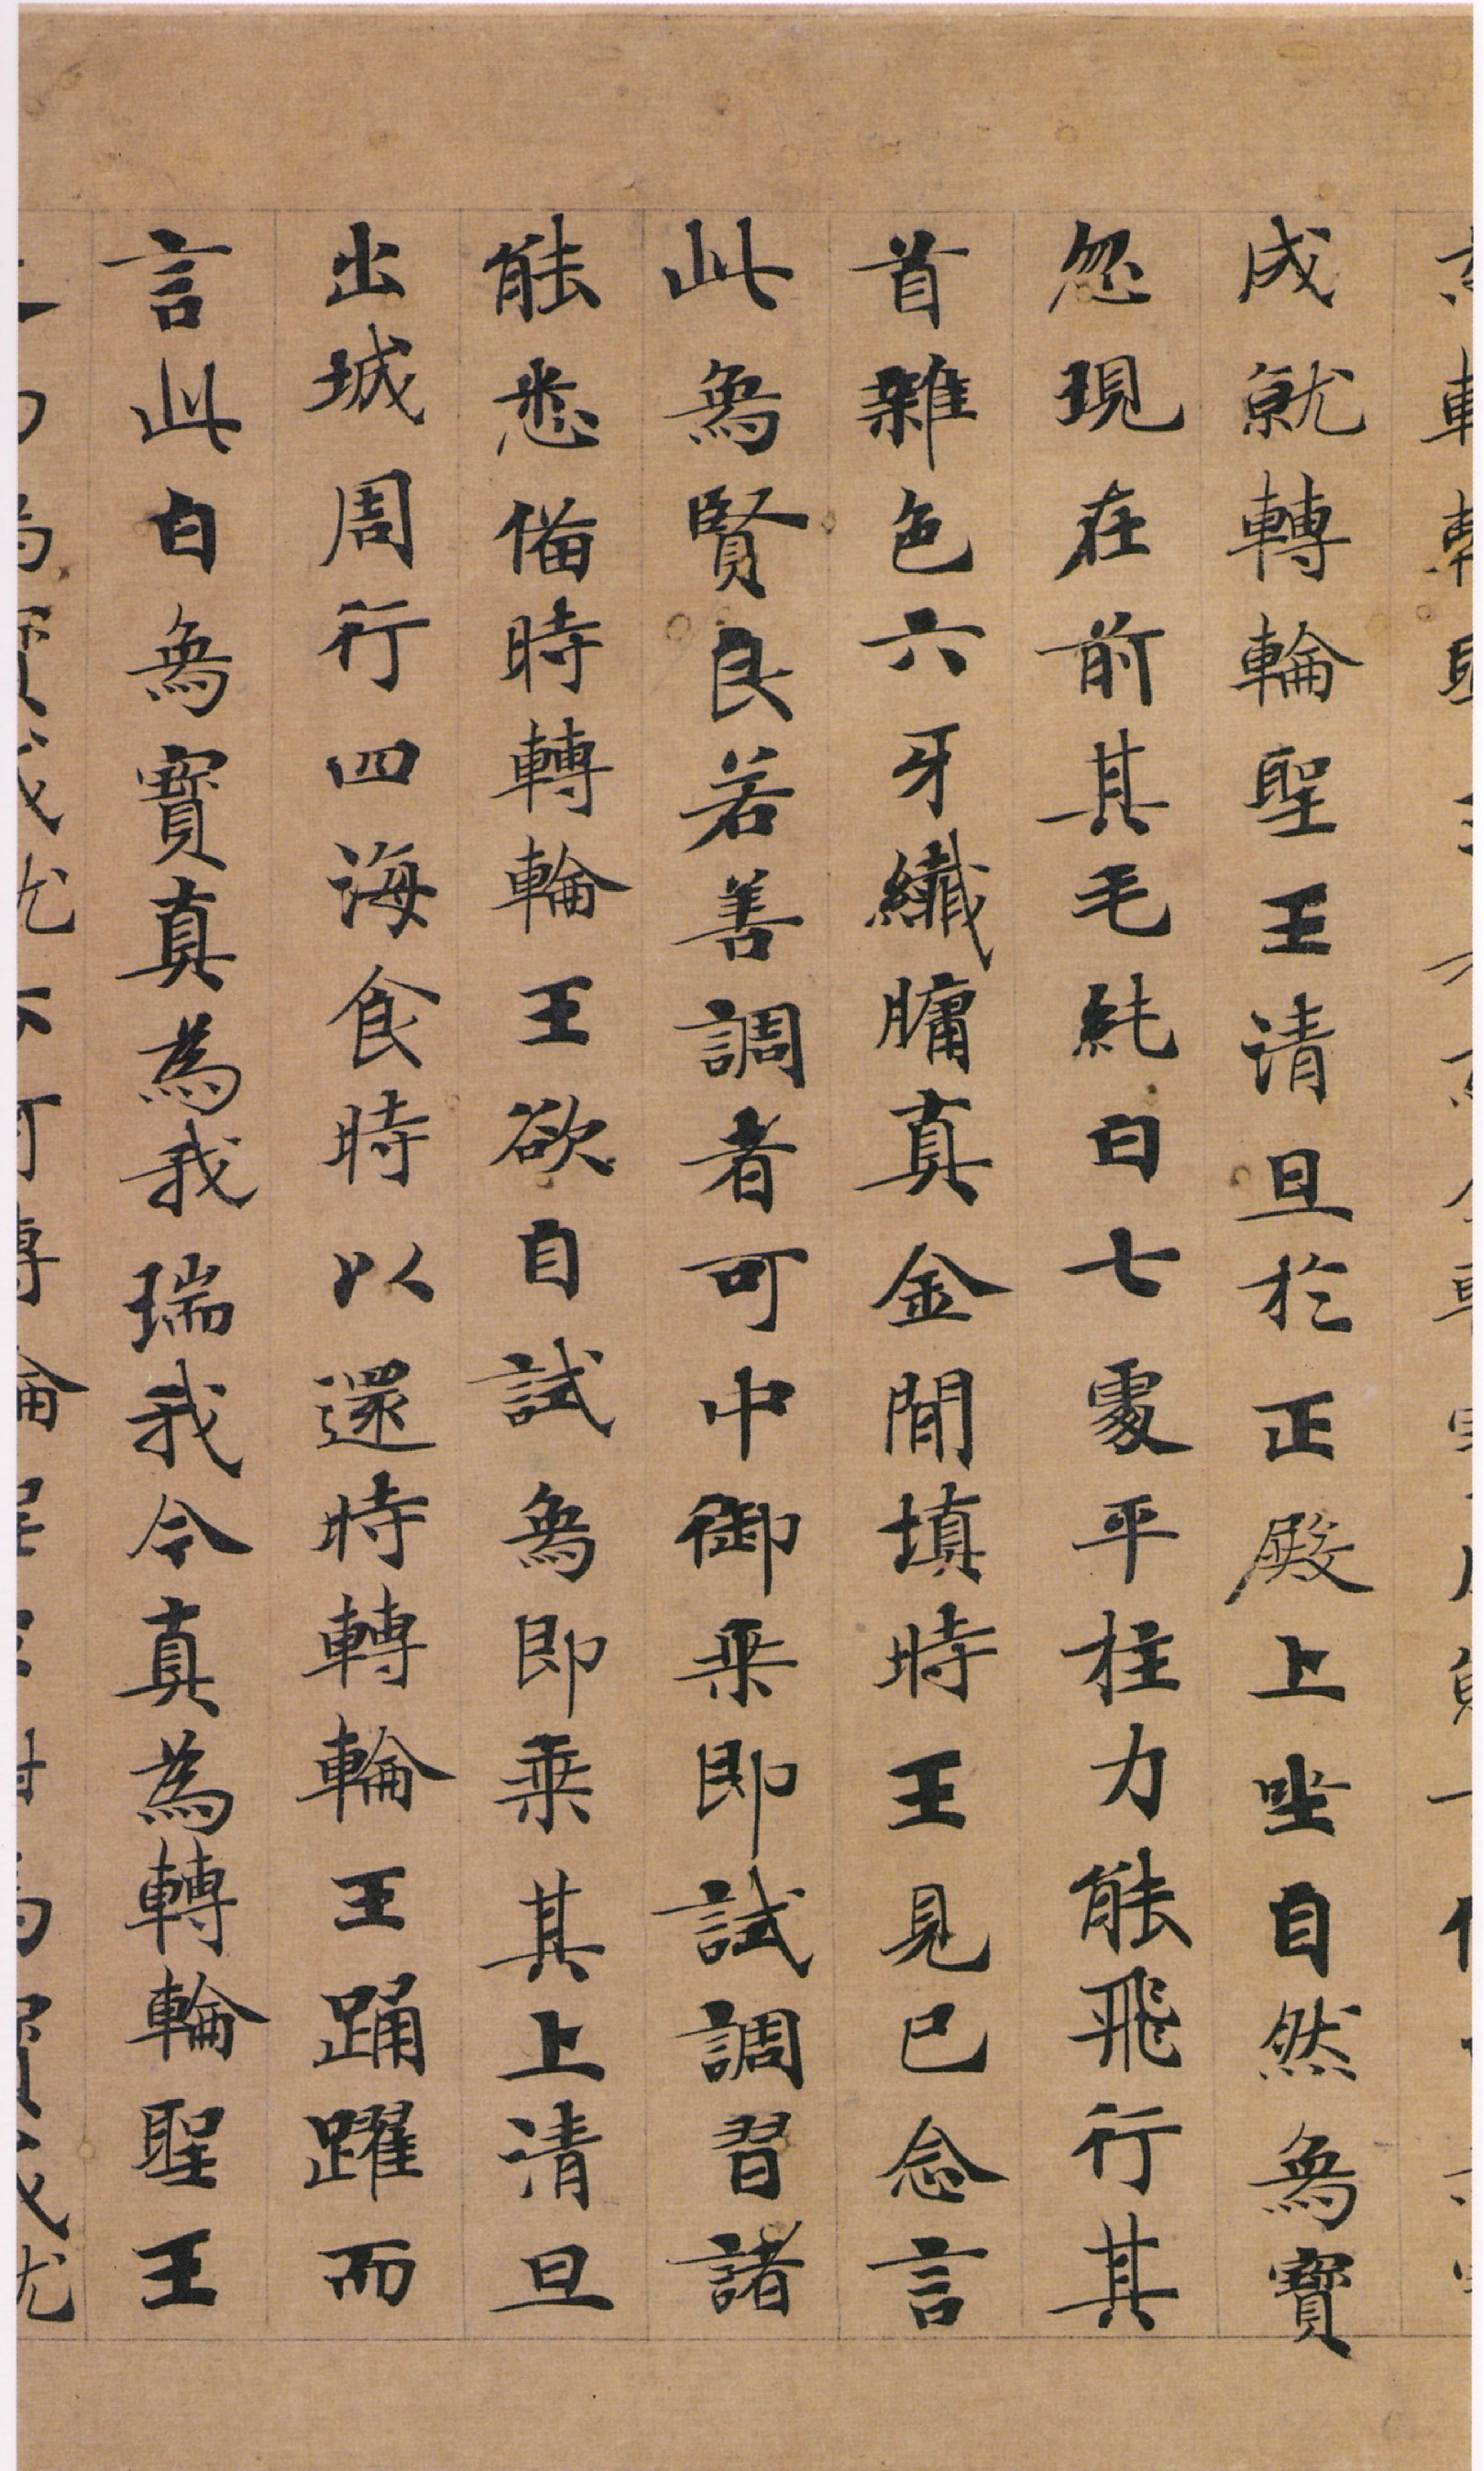 成就轉輪聖王清旦於正殿上坐自然象寶
忽現在前其毛純白七處平柱力能飛行其
首雜色六牙纖𦟛真金間填時王見已念言
此象賢良若善調者可中御乘即試調習諸
能悉備時轉輪王欲自試象即乘其上清旦
出城周行四海食時以還時轉輪王踊躍而
言此白象寶真為我瑞我今真為轉輪聖王